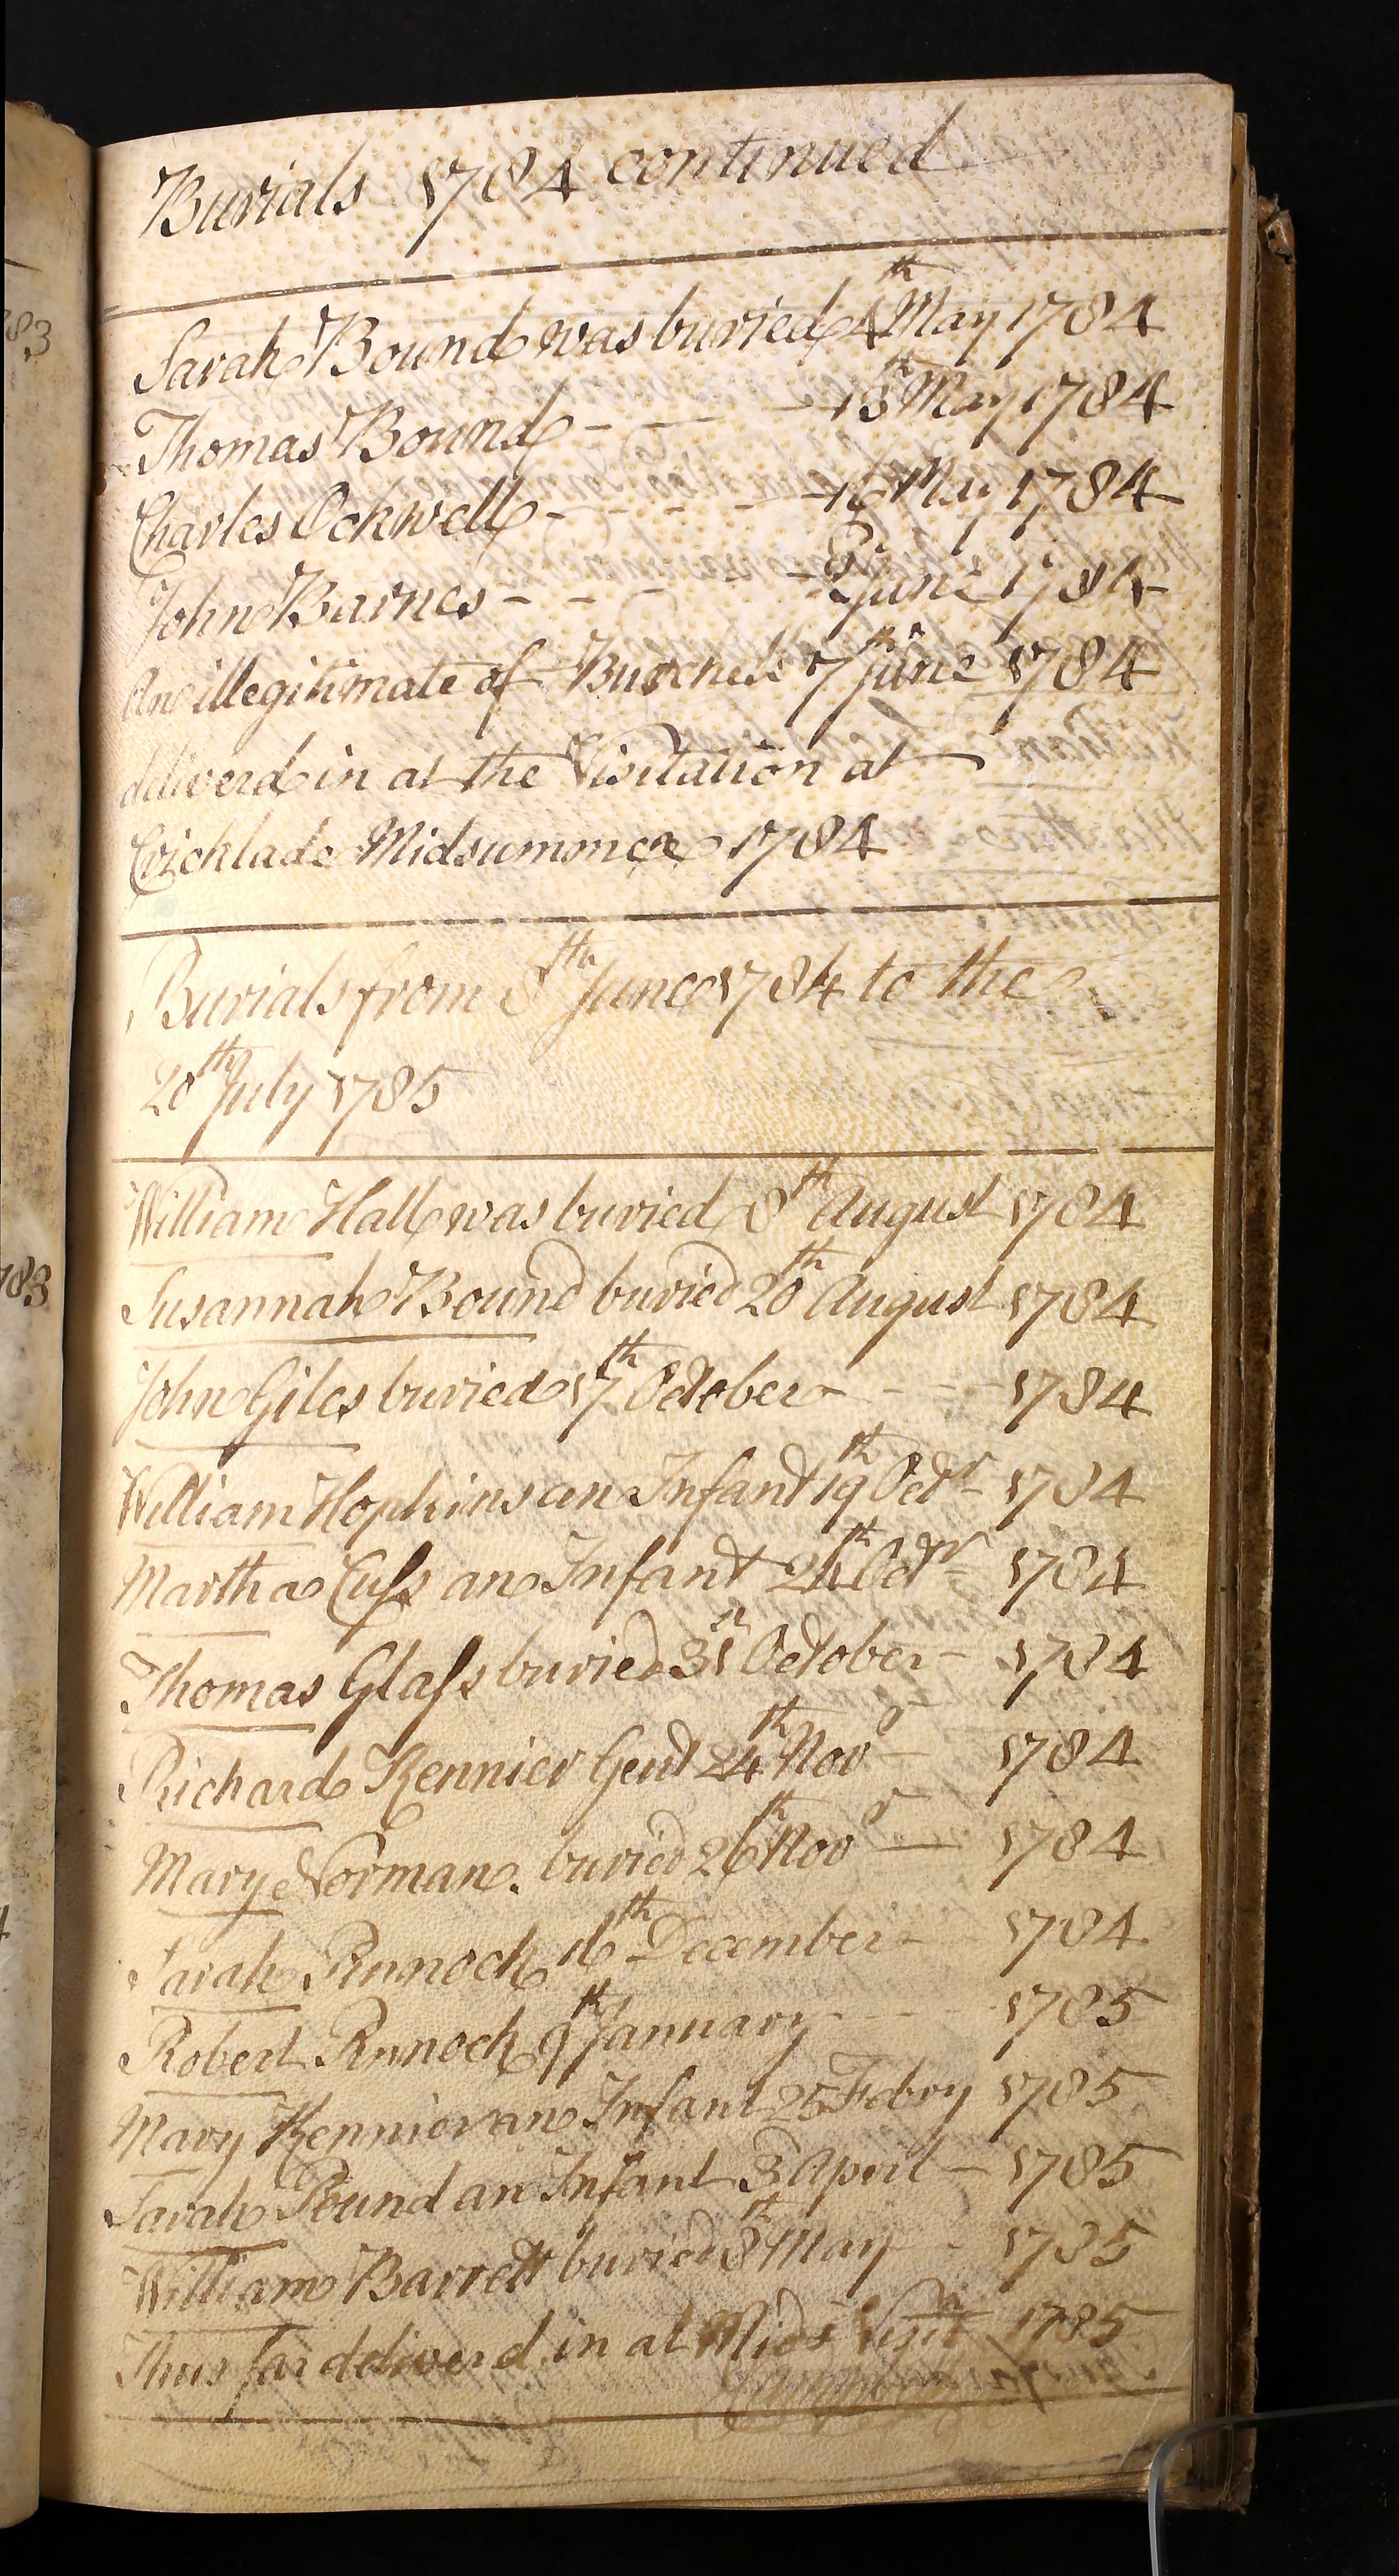 Burials 1784 continued
Sarah Bound was buried 4th May 1784
Thomas Bound - - - 13th May 1784
Charles Ockwell - - - - 16 May 1784
John Barnes - - - 2d June 1784
An illegitimate of 7th June 1784
deliverd in at the Visitation at
Cricklade Midsummer 1784
Burials from 8th June 1784 to the
20th July 1785
William Hall was buried 8th August 1784
Susannah Bound buried 20th August 1784
John Giles buried 17th October - - - 1784
William Hopkins an Infant 19th Octr 1784
Martha Cuſs an Infant 24th Octr 1784
Thomas Glaſs buried 31st October - 1784
Richard Kennier Gent 24th Novr - 1784
Mary Norman. buried 26th Novr - 1784
Sarah Pinnock 16th December - 1784
Robert Pinnock 9th January - - - 1785
Mary Kennier an Infant 25 Febry 1785
Sarah Pound an Infant 3d April - 1785
William Barrett buried 8th May - 1785
Thus far deliverd in at Mids 1785